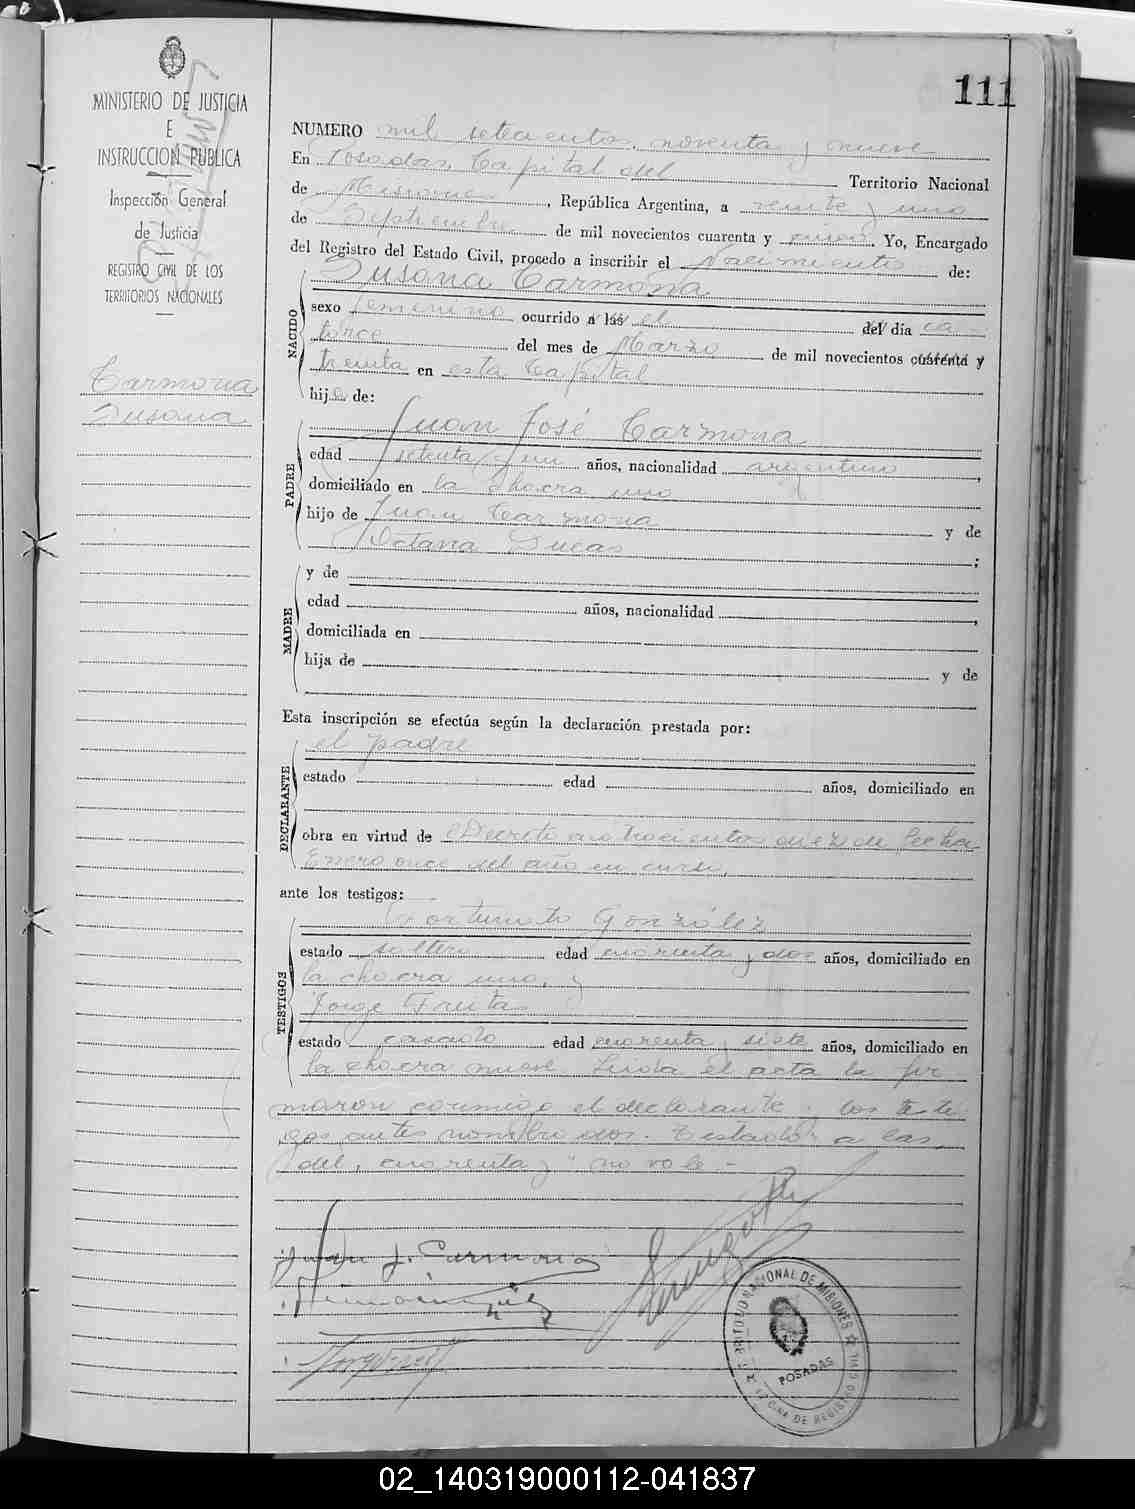 111
MINISTERIO DE JUSTICIA
E
INSTRUCCION PUBLICA
Inspección General
de Justicia
REGISTRO CIVIL DE LOS
TERRITORIOS NACIONALES
Carmona
Susana
NUMERO mil setecientos noventa y nueve
En Posadas, Capital del Territorio Nacional
de Misiones, República Argentina, a veinte y uno
de Septiembre de mil novecientos cuarenta y cinco Yo, Encargado
del Registro del Estado Civil, procedo a inscribir el Nacimiento de:
NACIDO
Susana Carmona
sexo femenino ocurrido a las el del día ca
torce del mes de Marzo de mil novecientos cuarenta y
treinta en esta Capital
hija de:
PADRE
Juan José Carmona
edad setenta y un años, nacionalidad argentino,
domiciliado en la chacra uno
hijo de Juan Carmona y de
Octavia Lucas;
MADRE
y de
edad años, nacionalidad,
domiciliada en
hija de y de
Esta inscripción se efectúa según la declaración prestada por:
DECLARANTE
el padre
estado edad años, domiciliado en
obra en virtud de Decreto cuatrocientos diez de fecha
Enero once del año en curso,
ante los testigos:
TESTIGOS
Fortunato González
estado soltero edad cuarenta y dos años, domiciliado en
la chacra uno, y
Jorge
estado casado edad cuarenta y siete años, domiciliado en
la chacra nueve Leída el acta la fir
maron conmigo el declarante y los testi
gos antes nombrados. Testado: a las,
del, cuarenta y "no vale.-
Juan J. Carmona
TERRITORIO NACIONAL DE MISIONES
POSADAS
OFICINA DE REGISTRO CIVIL
02_140319000112-041837